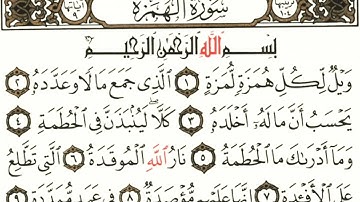 سُورَةُ الْهُمَزَةِ
بِسْمِ اللَّهِ الرَّحْمَٰنِ الرَّحِيمِ
وَيْلٌ لِّكُلِّ هُمَزَةٍ لُّمَزَةٍ ١ الَّذِي جَمَعَ مَالًا وَعَدَّدَهُ ٢
يَحْسَبُ أَنَّ مَالَهُ أَخْلَدَهُ ٣ كَلَّا ۖ لَيُنبَذَنَّ فِي الْحُطَمَةِ ٤
وَمَا أَدْرَىٰكَ مَا الْحُطَمَةُ ٥ نَارُ اللَّهِ الْمُوقَدَةُ ٦ الَّتِي تَطَّلِعُ
عَلَى الْأَفْئِدَةِ ٧ إِنَّهَا عَلَيْهِم مُّؤْصَدَةٌ ٨ فِي عَمَدٍ مُّمَدَّدَةٍ ٩